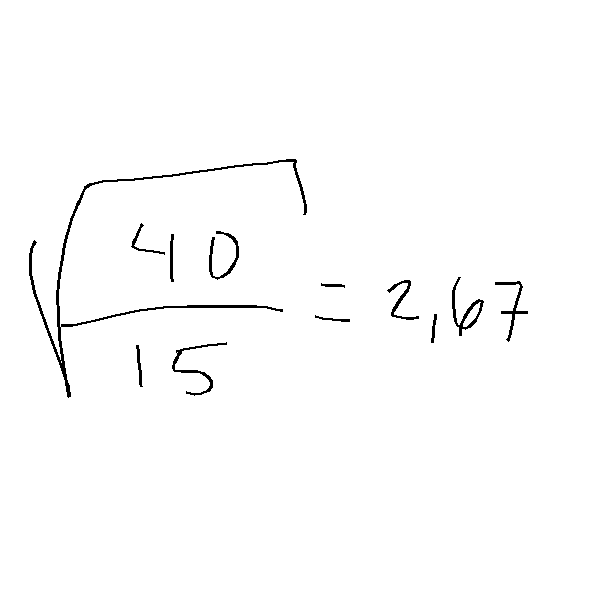 √(40/15) = 2,67